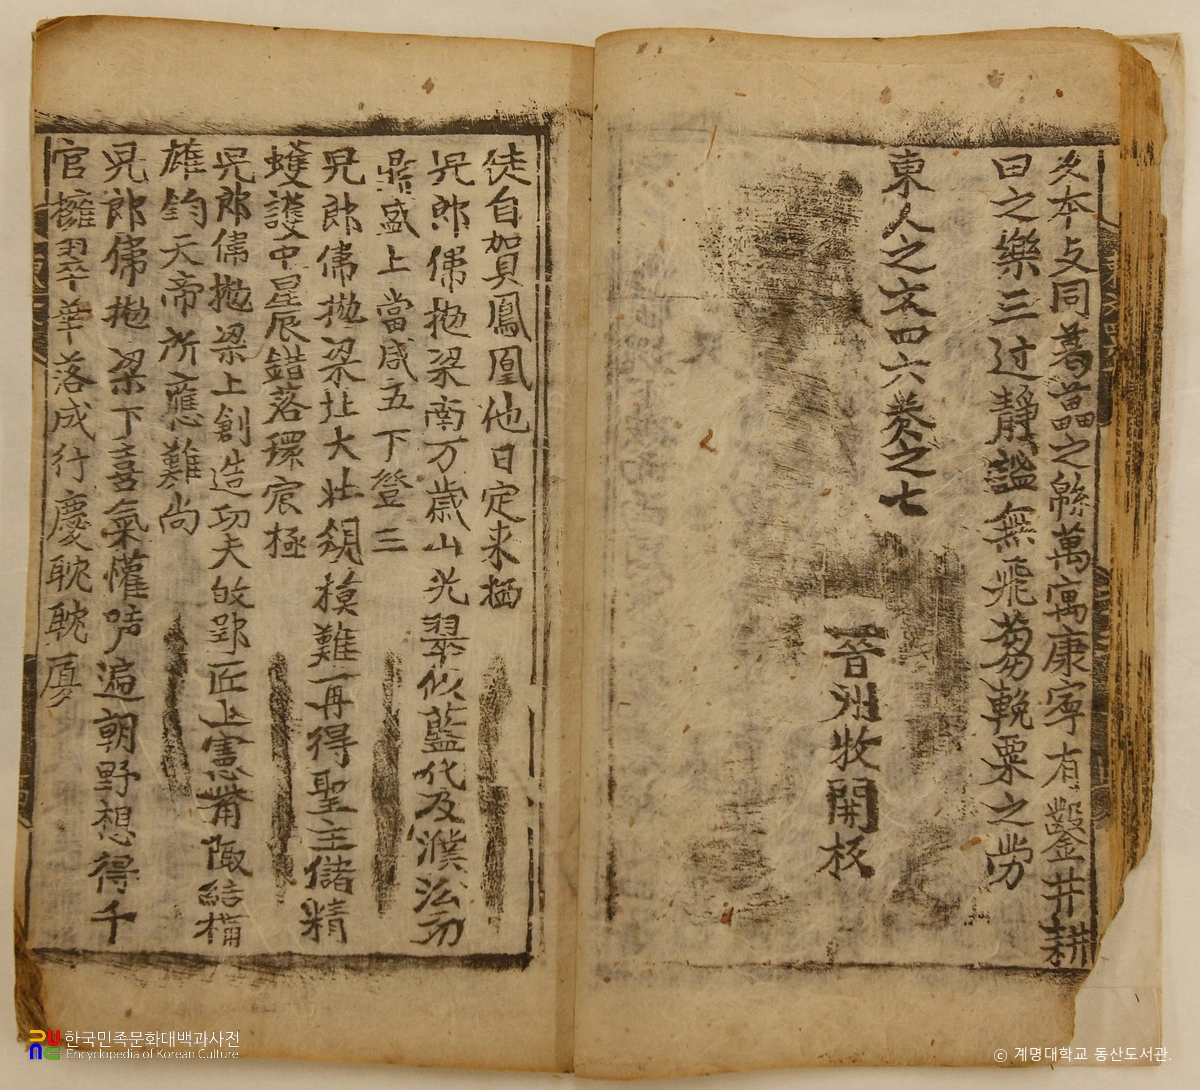 本支同葛藟之緜萬寓康寧有鑿井耕
田之樂三边靜謐無飛芻輓粟之勞
東人之文四六卷之七
晉州牧開板
徒自賀鳳凰他日定来栖
児郎偉抛梁南万歳山光翠似藍代及濮法
鼎盛上當咸五下登三
児郎偉抛梁北大壮䂓模難再得聖主儲精
蠖濩中星辰錯落環宸極
児郎偉抛梁上創造功夫攽郢匠上憲觜陬結構
雄鈞天帝所應難尚
児郎偉抛梁下喜氣懽声遍朝野想得千
官擁翠華落成行慶耽耽厦
한국민족문화대백과사전
Encyclopedia of Korean Culture
ⓒ 계명대학교 동산도서관.